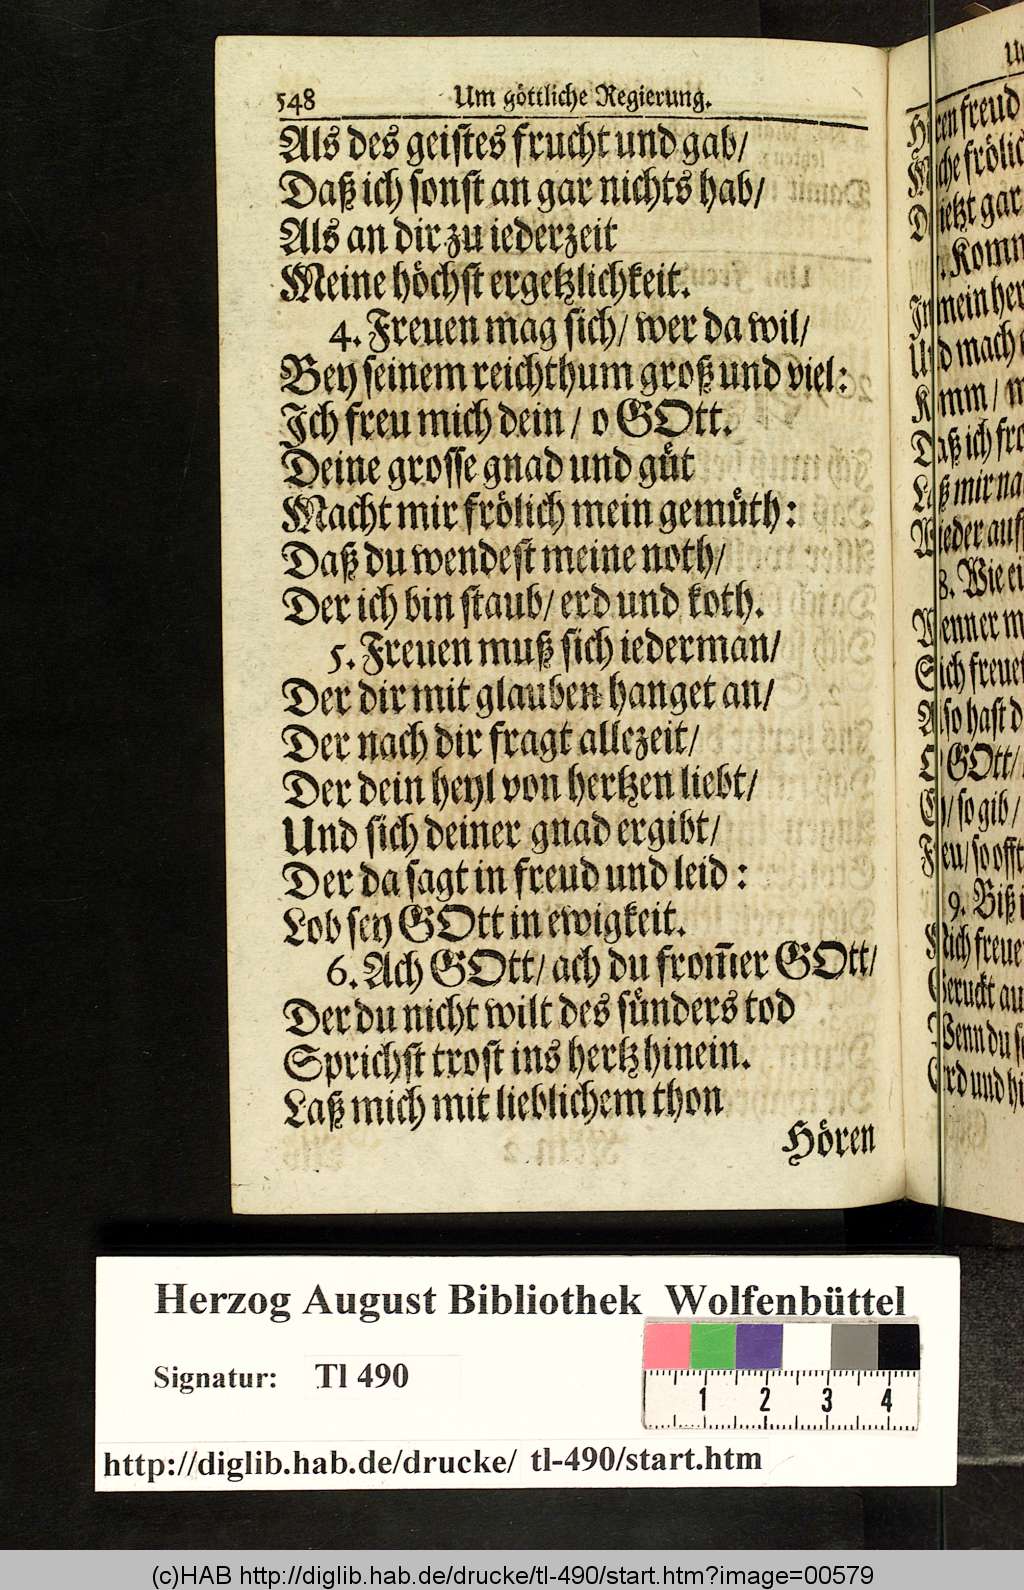 548 Um göttliche Regierung.
Als des geistes frucht und gab/
Daß ich sonst an gar nichts hab/
Als an dir zu iederzeit
Meine höchst ergetzlichkeit.
4. Freuen mag sich/ wer da wil/
Bey seinem reichthum groß und viel:
Ich freu mich dein/ o GOtt.
Deine grosse gnad und güt
Macht mir frölich mein gemüth:
Daß du wendest meine noth/
Der ich bin staub/ erd und koth.
5. Freuen muß sich iederman/
Der dir mit glauben hanget an/
Der nach dir fragt allezeit/
Der dein heyl von hertzen liebt/
Und sich deiner gnad ergibt/
Der da sagt in freud und leid:
Lob sey GOtt in ewigkeit.
6. Ach GOtt/ ach du from̅er GOtt/
Der du nicht wilt des sünders tod
Sprichst trost ins hertz hinein.
Laß mich mit lieblichem thon
Hören
freud
gar
mein
mach
Daß ich
mir
8. Wie
Sich
hast
GOtt/
so gib/
so offt
9. Biß
Wenn du
und
Herzog August Bibliothek Wolfenbüttel
Signatur: Tl 490
1 2 3 4
http://diglib.hab.de/drucke/ tl-490/start.htm
(c)HAB http://diglib.hab.de/drucke/tl-490/start.htm?image=00579